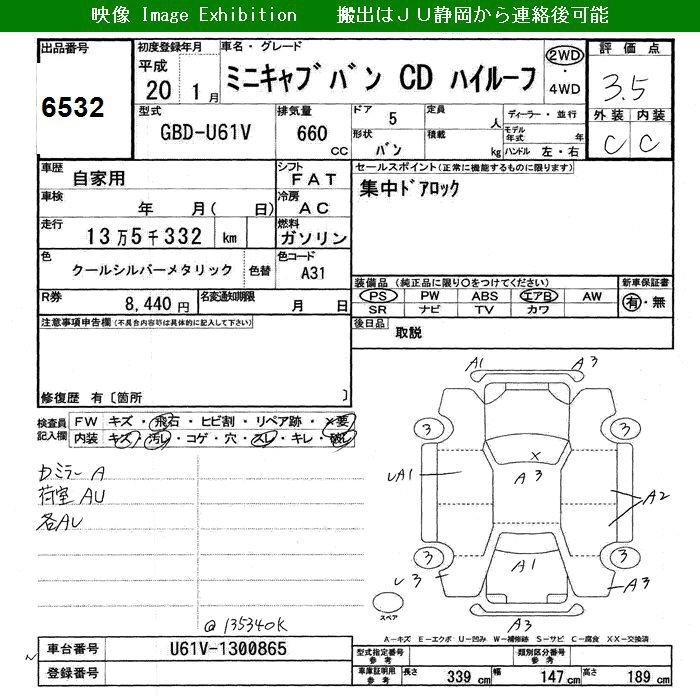 映像 Image Exhibition 搬出はＪＵ静岡から連絡後可能
出品番号
6532
初度登録年月
平成
20 1月
車名・グレード
ミニキャブバン CD ハイルーフ
2WD
・
4WD
評価点
3.5
外装 内装
C C
型式
GBD-U61V
排気量
660
CC
ドア
5
形状
バン
定員
人
積載
kg
ディーラー・並行
モデル年式 年
ハンドル 左・右
車歴
自家用
シフト
FAT
車検
年 月( 日)
冷房
AC
走行
13万5千332 km
燃料
ガソリン
色
クールシルバーメタリック
色替
色コード
A31
R券
8,440円
名変通知期限
月 日
セールスポイント(正常に機能するものに限ります)
集中ドアロック
装備品 (純正品に限り○をつけてください)
PS PW ABS エアB AW
SR ナビ TV カワ
新車保証書
有・無
後日品
取説
注意事項申告欄(不具合内容等は具体的に記入して下さい)
修復歴 有〔箇所 〕
検査員記入欄
FW キズ・飛石・ヒビ割・リペア跡・×要
内装 キズ・汚レ・コゲ・穴・スレ・キレ・破レ
カミラー A
荷室 AU
各AU
@135340K
A1 A3
3 3
X
A3
UA1
A2
3 3
A1
U3
A3
A3
スペア
A－キズ E－エクボ U－凹み W－補修跡 S－サビ C－腐食 XX－交換済
車台番号
U61V-1300865
登録番号
型式指定番号
参考
類別区分番号
参考
車庫証明用
参考
長さ 339 cm 幅 147 cm 高さ 189 cm